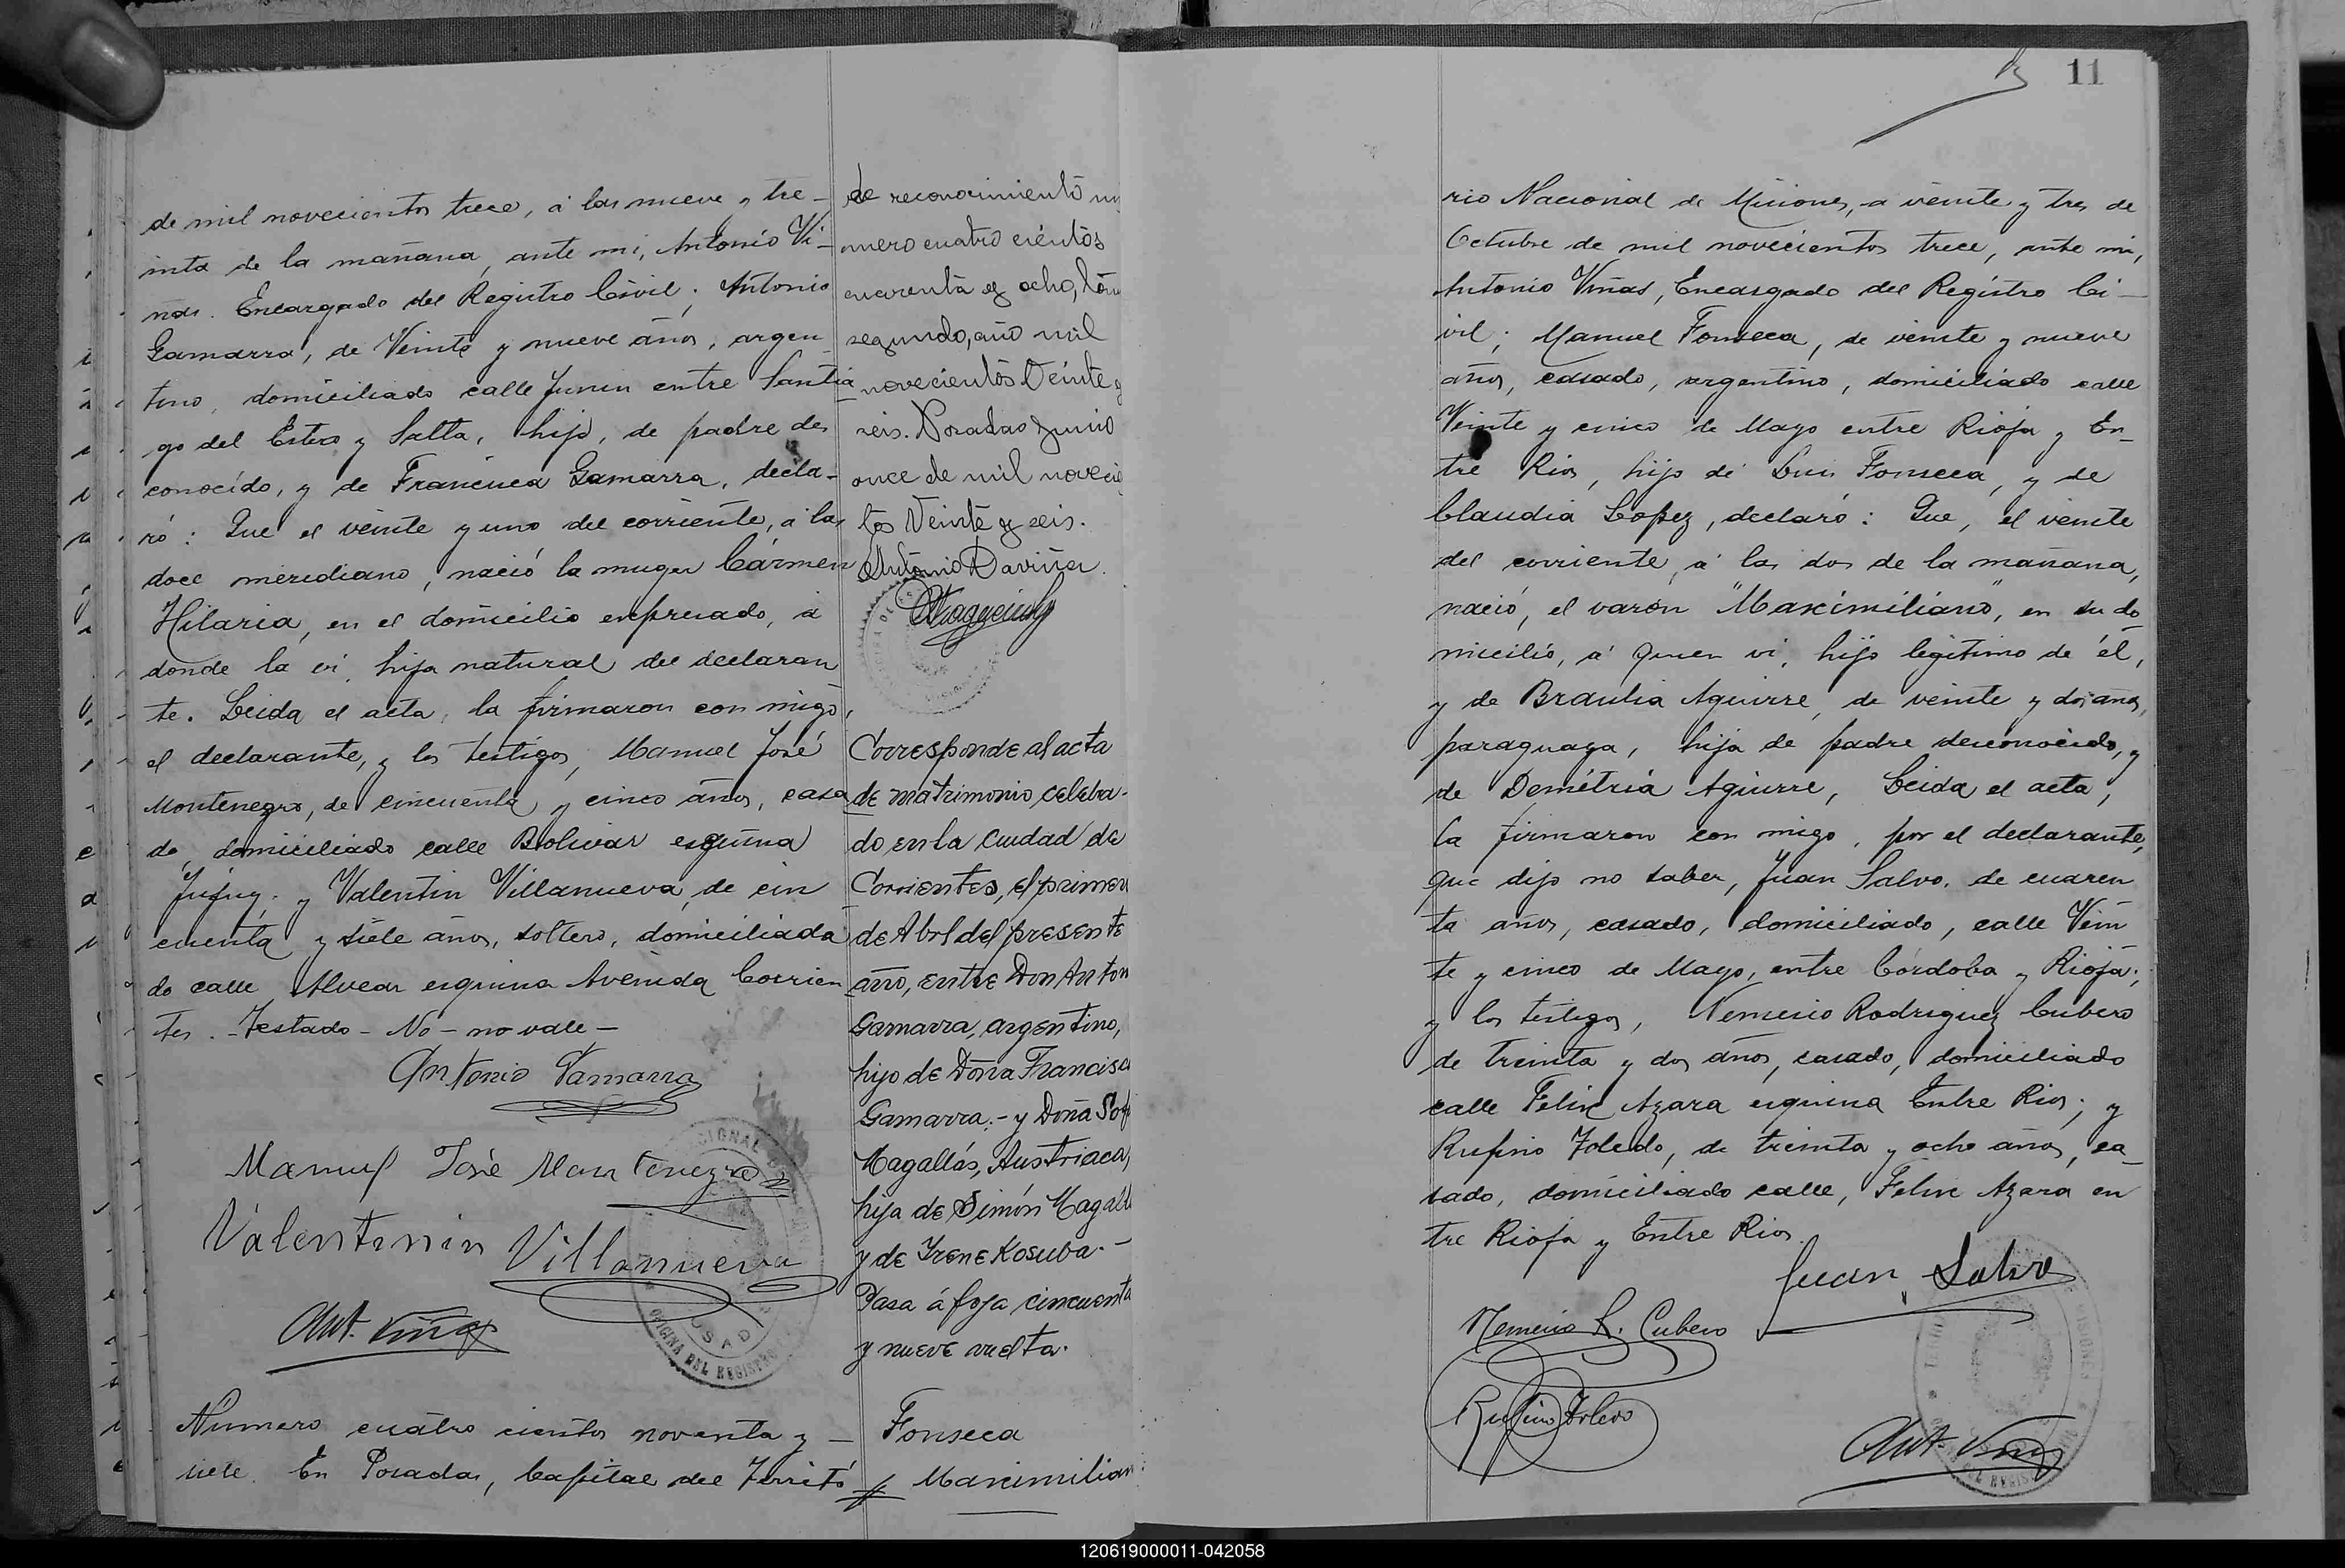 de mil novecientos trece, á las nueve y tre-
inta de la mañana, ante mi, Antonio Vi-
ñas. Encargado del Registro Civil; Antonio
Gamarra, de Veinte y nueve años, argen
tino, domiciliado calle Junin entre Santia
go del Estero y Salta, hijo, de padre des
conocido, y de Francisca Gamarra, decla-
ró: Que el veinte y uno del corriente, á las
doce meridiano, nació la muger Cármen
Hilaria, en el domicilio expresado, á
donde la vi, hija natural del declaran
te. Leida el acta, la firmaron con migo,
el declarante, y los testigos, Manuel José
Montenegro, de cincuenta y cinco años, casa
do, domiciliado calle Bolivar esquina
Jujuy. y Valentin Villanueva, de cin
cuenta y siete años, soltero, domiciliada
do calle Alvear esquina Avenida Corrien
tes. - Testado - No - no vale -
Antonio Gamarra
Manuel José Montenegro
Valentinin Villanueva
Ant. Viñas
Número cuatro cientos noventa y -
siete. En Posadas, Capital del Territó
de reconocimiento nú
mero cuatro cientos
cuarenta y ocho, tomo
segundo, año mil
novecientos Veinte y
seis. Posadas Junio
once de mil novecien
tos Veinte y seis.
Corresponde al acta
de matrimonio, celeba-
do en la ciudad de
Corrientes, el primero
de Abril del presente
año, entre Don Anton
Gamarra, argentino,
hijo de Doña Francisca
Gamarra.- y Doña
Magallás, Austriaca,
hija de Simón
y de Irene Kosuba.-
Pasa á foja cincuenta
y nueve vuelta.
Fonseca
Maximilian
11
rio Nacional de Misiones, a veinte y tres de
Octubre de mil novecientos trece, ante mi,
Antonio Viñas, Encargado del Registro Ci-
vil; Manuel Fonseca, de veinte y nueve
años, casado, argentino, domiciliado calle
Veinte y cinco de Mayo entre Rioja y En-
tre Rios, hijo de Luis Fonseca, y de
Claudia Lopez, declaró: Que, el veinte
del corriente, á las dos de la mañana,
nació, el varón "Maximiliano", en su do
micilio, á quien vi, hijo legítimo de él,
y de Braulia Aguirre, de veinte y dos años,
paraguaya, hija de padre desconocido, y
de Demétria Aguirre, Leida el acta,
la firmaron con migo, por el declarante,
que dijo no saber, Juan Salvo, de cuaren
ta años, casado, domiciliado, calle Vein
te y cinco de Mayo, entre Córdoba y Rioja;
y los testigos, Nemesio Rodriguez Cubero
de treinta y dos años, casado, domiciliado
calle Felix Azara esquina Entre Rios; y
Rufino Toledo, de treinta y ocho años, ca-
sado, domiciliado calle, Felix Azara en
tre Rioja y Entre Rios.
Juan Salvo
Nemesio R. Cubero
Rufino Toledo
Ant. Viñas
120619000011-042058